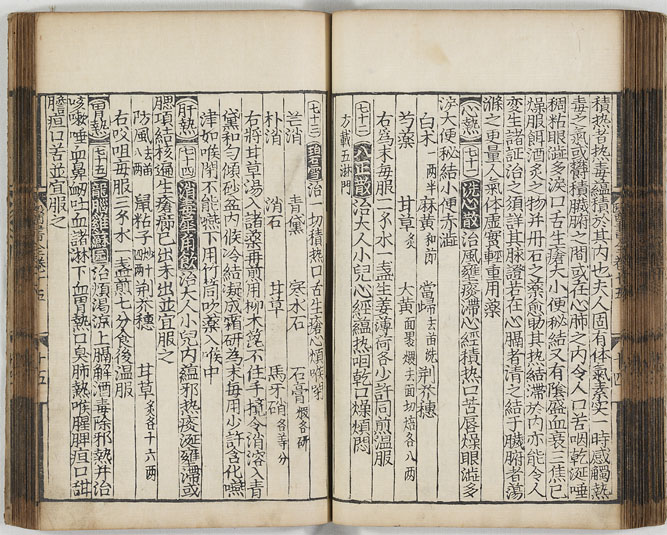 積热者热毒蘊積於其内也夫人固有体氣素实一時感觸热
毒之氣或欝積臓腑之間或在心肺之内令人口苦咽乾涎唾
稠粘眼澁多淚口舌生瘡大小便秘結又有隂虚血衰三焦已
燥服餌酒炙之物并丹石之藥愈助其热結滞於内亦能令人
变生諸証治之須詳其脉證若在心膈者清之結于臓腑者蕩
滌之更量人氣体虚實輕重用藥
心熱 七十一 洗心散 治風壅痰滞心經積热口苦唇燥眼澁多
淚大便秘結小便赤澁
白朮一兩半 麻黄和莭 當歸去苗洗 荆芥穗
芍藥 甘草炙 大黄面裹煨去面切焙各八两
右為末每服二 水一盞生姜薄荷各少許同煎温服
七十二 八正散 治大人小兒心經蘊热咽乾口燥煩悶
方載五淋門
七十三 碧雪 治一切積热口舌生瘡心煩喉閉
芒消 青黛 寒水石 石膏煅各研
朴消 消石 甘草 馬牙硝各等分
右將甘草湯入諸藥再煎用柳木篦不住手攪令消溶入青
黛和匀傾砂盆内候冷結凝成霜研為末每用少許含化嚥
津如喉閉不能嚥下用竹筒吹藥入喉中
肝熱 七十四 消毒犀角飲 治大人小兒内蘊邪热痰涎壅滞或
腮項結核遍生瘡癤已出未出並宜服之
防風去苗八兩 鼠粘子炒四十兩 荆芥穗 甘草炙各十六两
右㕮咀每服三 水一盞煎七分食後温服
胃熱 七十五 龍腦雞蘇圓 治煩渇凉上膈解酒毒除邪热并治
咳嗽唾血鼻衂吐血諸淋下血胃热口臭肺热喉腥脾疸口甜
膽疸口苦並宜服之